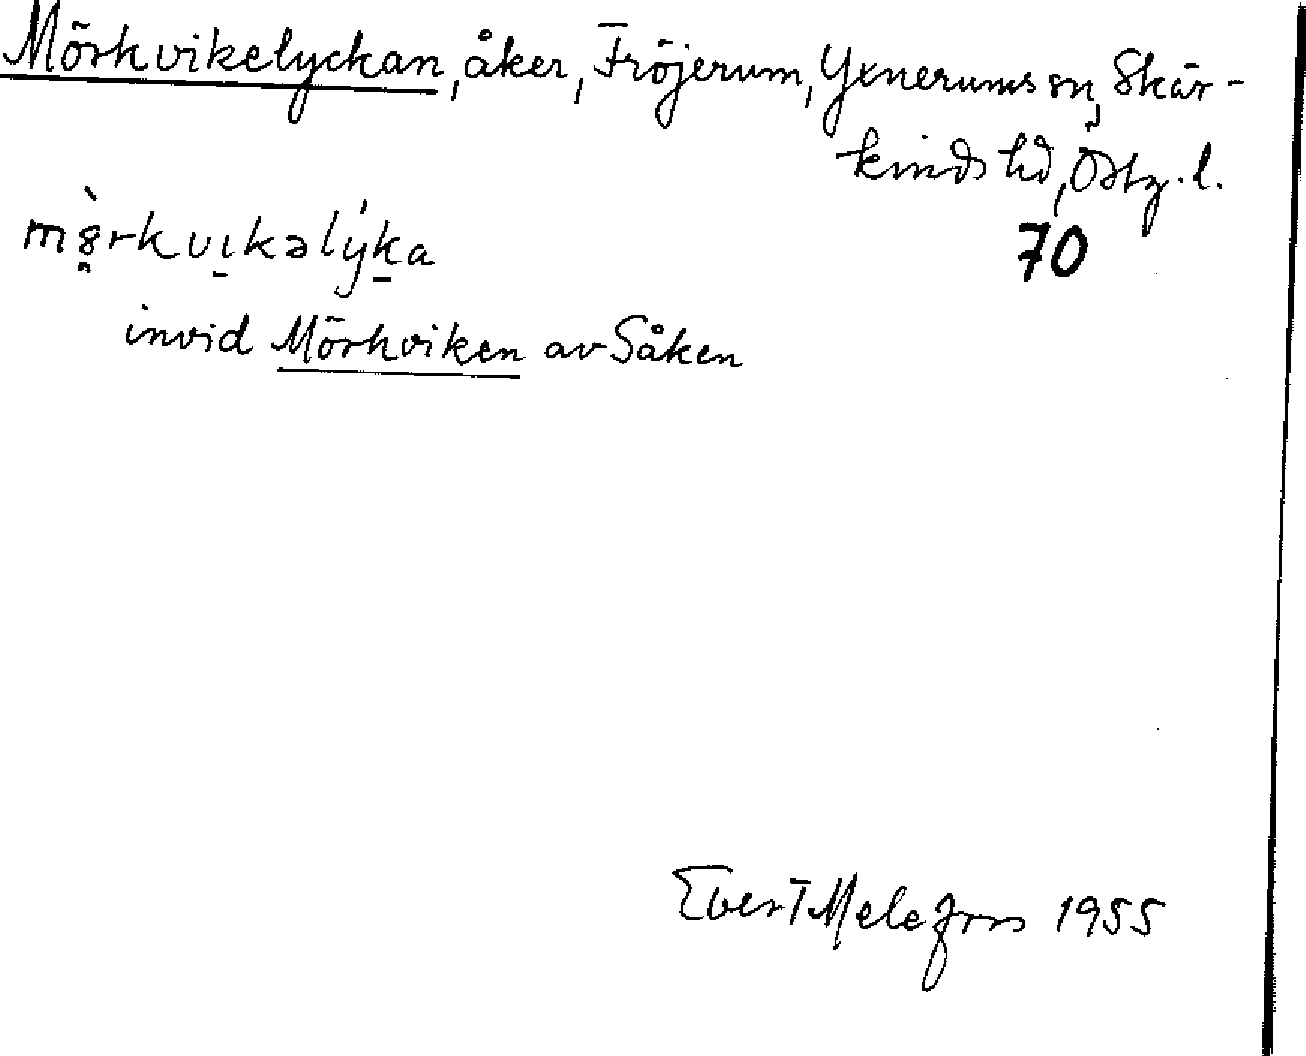 Mörkvikelyckan, åker, Fröjerum, Yxnerums sn, Skär-
kinds hd, Östg.l.
70
m8̀rkvıkəlýka
invid Mörkviken av Såken
Evert Melefors 1955